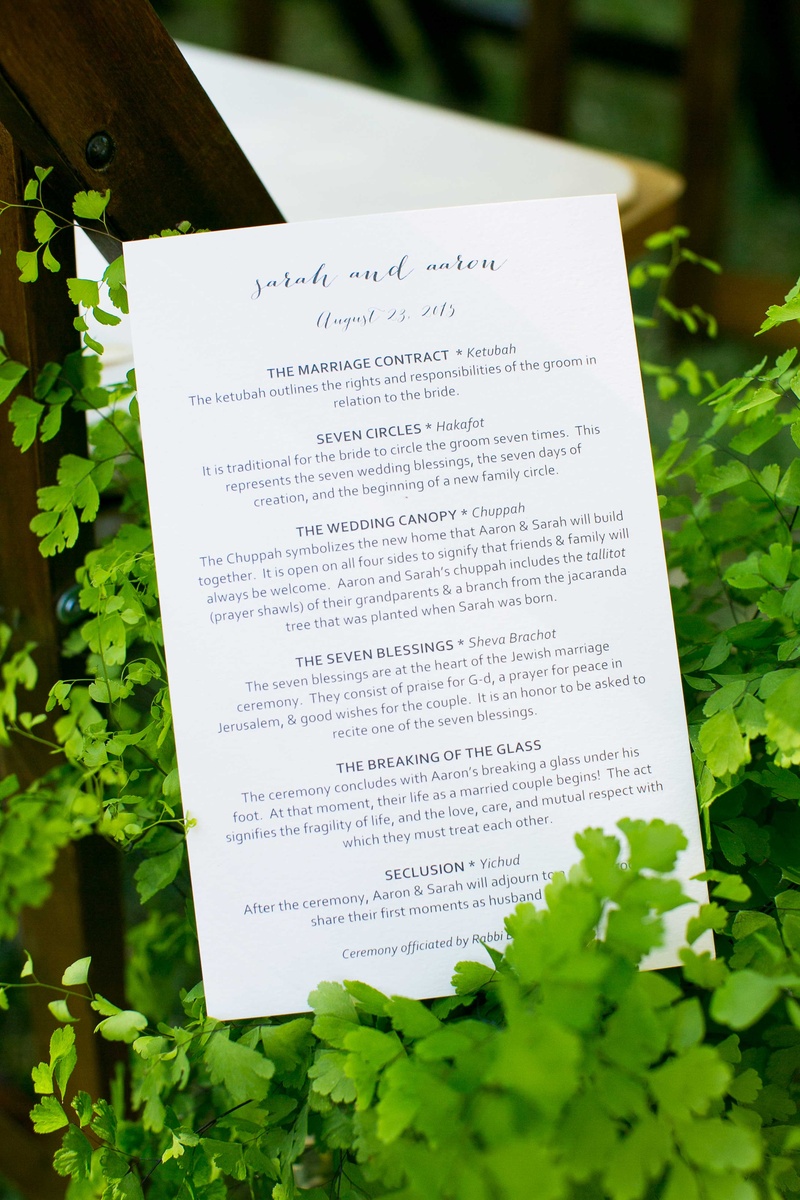 sarah and aaron
August 23, 2013
THE MARRIAGE CONTRACT * Ketubah
The ketubah outlines the rights and responsibilities of the groom in
relation to the bride.
SEVEN CIRCLES * Hakafot
It is traditional for the bride to circle the groom seven times. This
represents the seven wedding blessings, the seven days of
creation, and the beginning of a new family circle.
THE WEDDING CANOPY * Chuppah
The Chuppah symbolizes the new home that Aaron & Sarah will build
together. It is open on all four sides to signify that friends & family will
always be welcome. Aaron and Sarah's chuppah includes the tallitot
(prayer shawls) of their grandparents & a branch from the jacaranda
tree that was planted when Sarah was born.
THE SEVEN BLESSINGS * Sheva Brachot
The seven blessings are at the heart of the Jewish marriage
ceremony. They consist of praise for G-d, a prayer for peace in
Jerusalem, & good wishes for the couple. It is an honor to be asked to
recite one of the seven blessings.
THE BREAKING OF THE GLASS
The ceremony concludes with Aaron's breaking a glass under his
foot. At that moment, their life as a married couple begins! The act
signifies the fragility of life, and the love, care, and mutual respect with
which they must treat each other.
SECLUSION * Yichud
After the ceremony, Aaron & Sarah will adjourn to
share their first moments as husband
Ceremony officiated by Rabbi